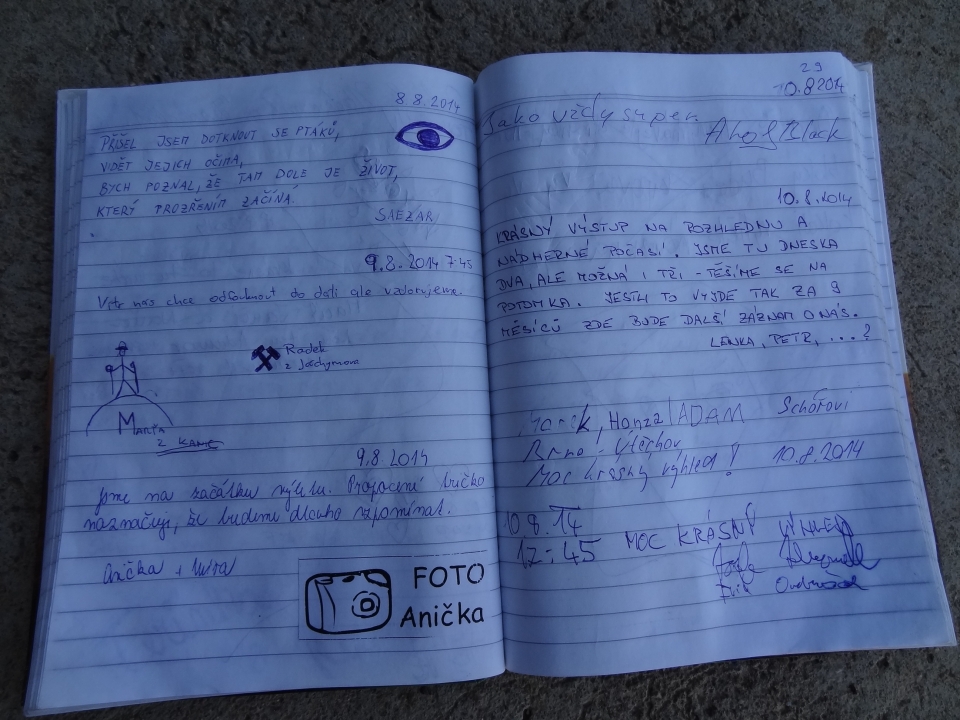 8.8.2014
PŘIŠEL JSEM DOTKNOUT SE PTÁKŮ,
VIDĚT JEJICH OČIMA,
BYCH POZNAL, ŽE TAM DOLE JE ŽIVOT,
KTERÝ PROZŘENÍM ZAČÍNÁ.
SAEZAR
9.8.2014 7:45
Vítr nás chce odfouknout do dáli ale vzdorujeme.
Radek
z Jáchymova
Marťa
z KAMC
9.8 2014
Jsme na začátku výletu. Propocené tričko
naznačuje, že budeme dlouho vzpomínat.
Anička +
FOTO
Anička
29
10.8 2014
Jako vždy super
Ahoj Black
10.8.2014
KRÁSNÝ VÝSTUP NA ROZHLEDNU A
NÁDHERNÉ POČASÍ. JSME TU DNESKA
DVA, ALE MOŽNÁ I TŘI - TĚŠÍME SE NA
POTOMKA. JESTLI TO VYJDE TAK ZA 9
MĚSÍCŮ ZDE BUDE DALŠÍ ZÁZNAM O NÁS.
LENKA, PETR, ...?
Honza, ADAM
Brno -
Moc krásný výhled! 10.8.2014
10.8.14
12:45 MOC KRÁSNÝ VÝHLED